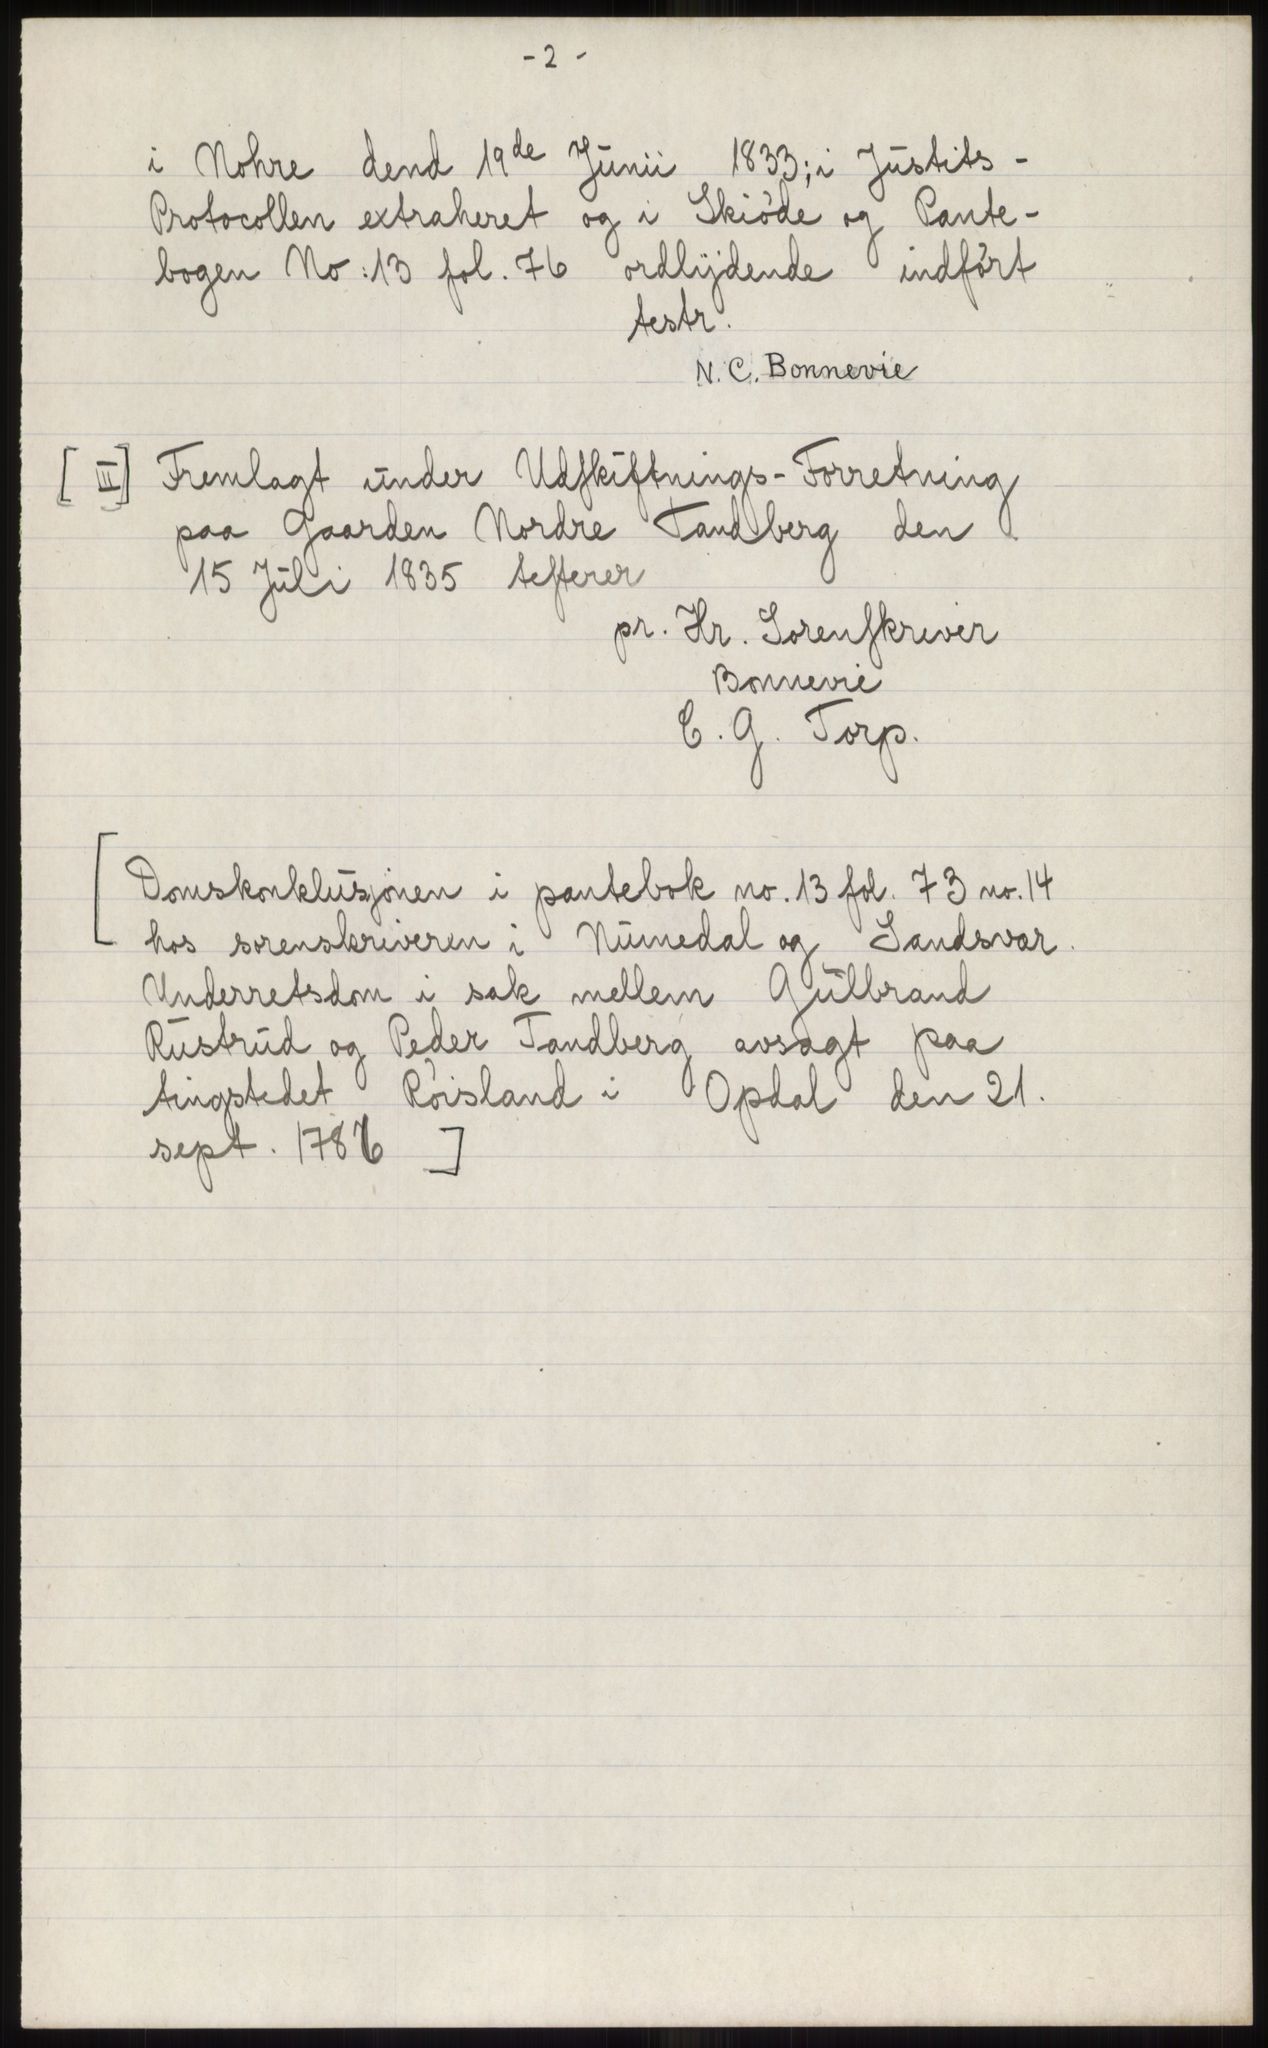 - 2 -
i Nohre dend 19de Junii 1833; i Justits-
Protocollen extraheret og i Skiøde og Pante-
bogen No: 13 fol. 76 ordlÿdende indført
testr.
N. C. Bonnevie
[II] Fremlagt under Udskiftnings-Forretning
paa Gaarden Nordre Tandberg den
15 Juli 1835 testerer
pr. Hr. Sorenskriver
Bonnevie
C. G. Torp.
[Domskonklusjonen i pantebok no. 13 fol. 73 no. 14
hos sorenskriveren i Numedal og Sandsvær.
Underretsdom i sak mellem Gulbrand
Rustrud og Peder Tandberg avsagt paa
tingstedet Røisland i Opdal den 21.
sept. 1786 ]